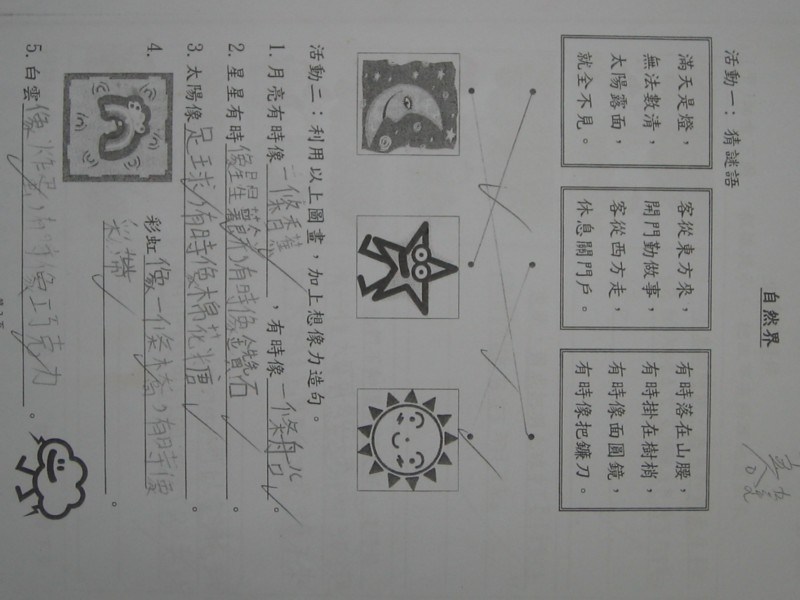 自然界
活動一：猜謎語
滿天是燈，
無法數清，
太陽露面，
就全不見。
客從東方來，
開門勤做事，
客從西方走，
休息關門戶。
有時落在山腰，
有時掛在樹梢，
有時像面圓鏡，
有時像把鐮刀。
活動二：利用以上圖畫，加上想像力造句。
1. 月亮有時像一條香蕉，有時像一條舟。
2. 星星有時像鑽石。
3. 太陽像足球，有時像棉花糖。
4. 彩虹像一條橋，有時像
彩帶。
5. 白雲像炸彈，有時像巧克力。